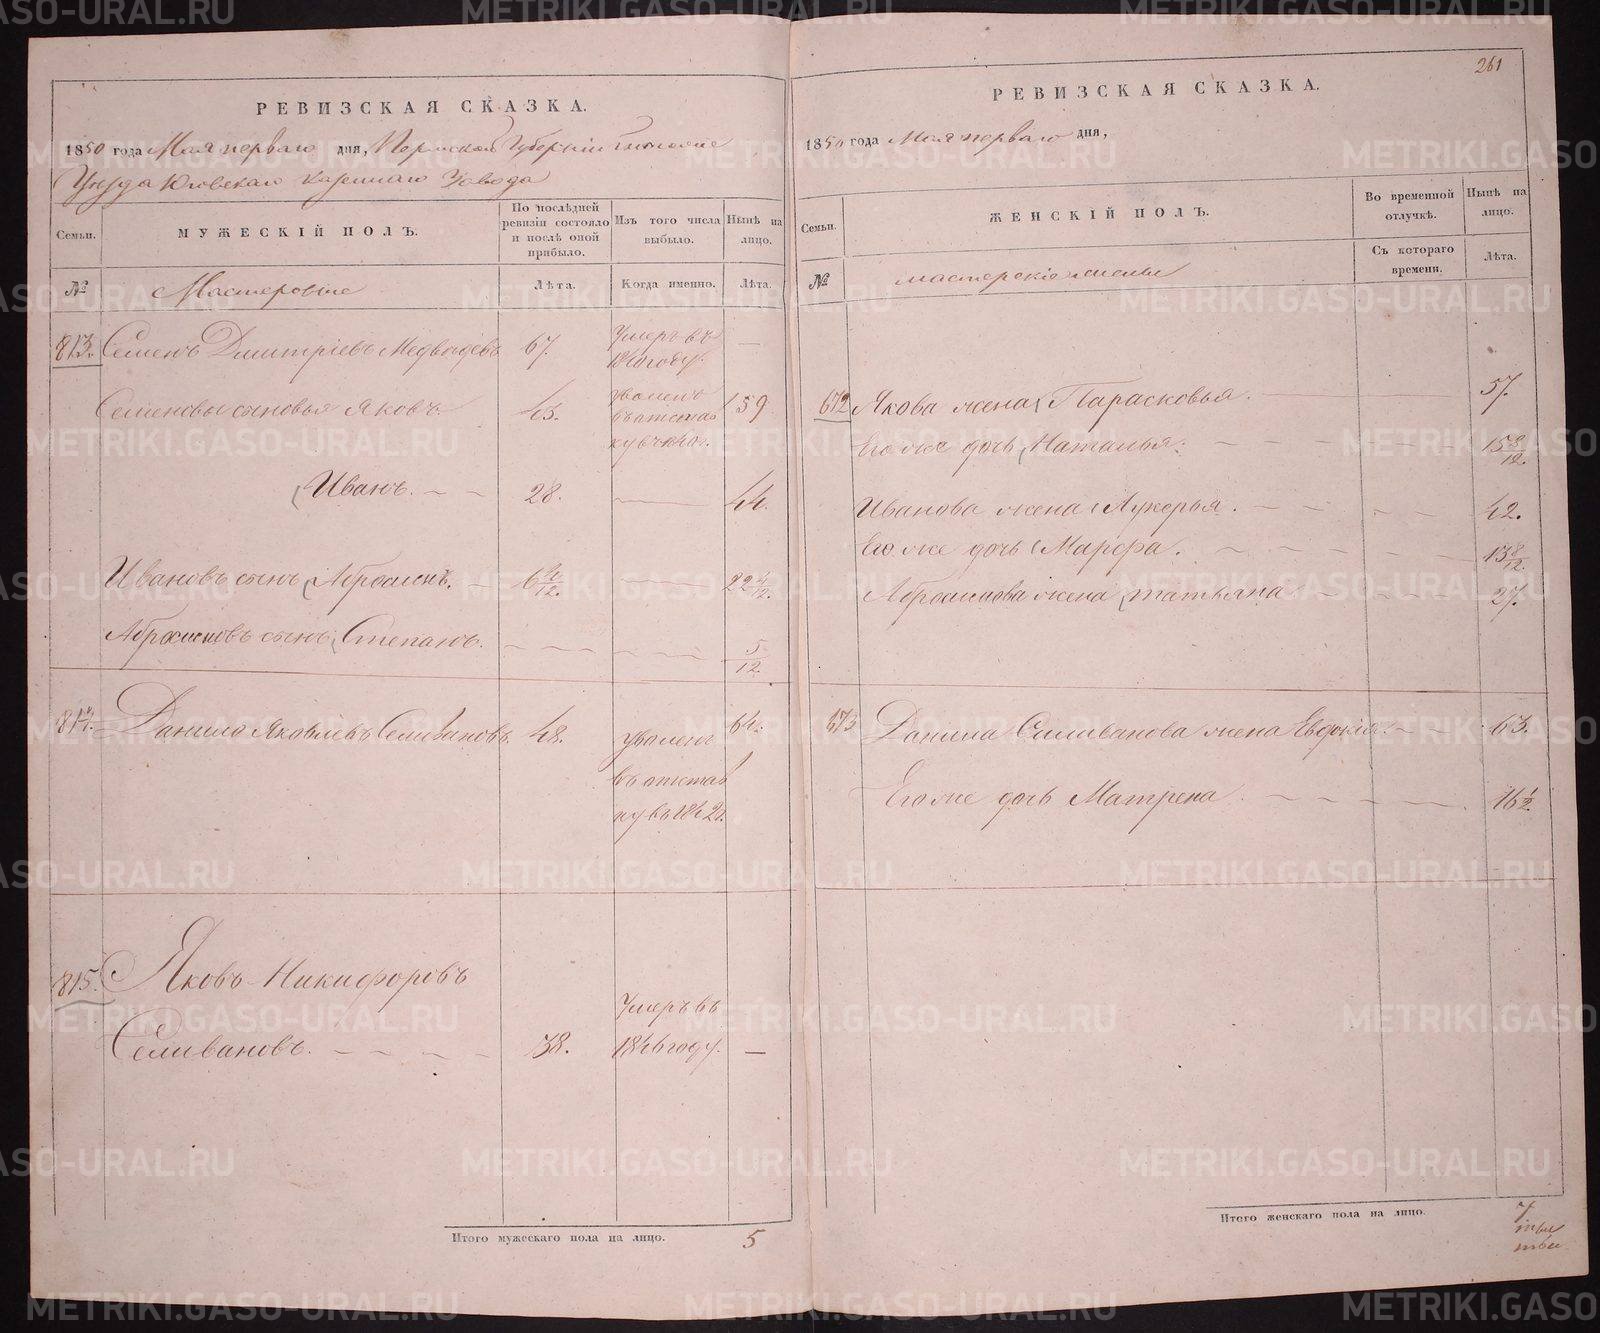 261
РЕВИЗСКАЯ СКАЗКА.
1850 года Мая перваго дня, Пермской Губерніи
Уезда Юговскаго казеннаго Завода
Семьи.
МУЖЕСКІЙ ПОЛЪ.
По послѣдней ревизіи состояло и послѣ оной прибыло.
Изъ того числа выбыло.
Нынѣ на лицо.
№
Мастеровые
Лѣта.
Когда именно.
Лѣта.
813. Семенъ Дмитріевъ Медвѣдевъ 67. Умеръ въ 1840 году. —
Семеновы сыновья Яковъ. 45. уволенъ въ отставку въ 59
Иванъ. 28. — 44.
Ивановъ сынъ Абросимъ. 6 4/12. — 22 4/12.
Абросимовъ сынъ Степанъ. 5/12.
814. Данило Яковлевъ Селивановъ. 48. уволенъ въ отставку въ 1842 г. 64.
815. Яковъ Никифоровъ
Селивановъ. 38. Умеръ въ 1846 году. —
Итого мужескаго пола на лицо. 5
РЕВИЗСКАЯ СКАЗКА.
1850 года Мая перваго дня,
Семьи.
ЖЕНСКІЙ ПОЛЪ.
Во временной отлучкѣ.
Нынѣ на лицо.
Съ котораго времени.
Лѣта.
№
мастерскіе
672 Якова жена Парасковья. 57.
Его же дочь Наталья. 15 8/12.
Иванова жена Лукерья. 42.
Его же дочь Марфа. 13 8/12.
Абросимова жена татьяна 27.
673 Данила Силиванова жена Евдокія. 63.
Его же дочь Матрена 16 1/2.
Итого женскаго пола на лицо. 7